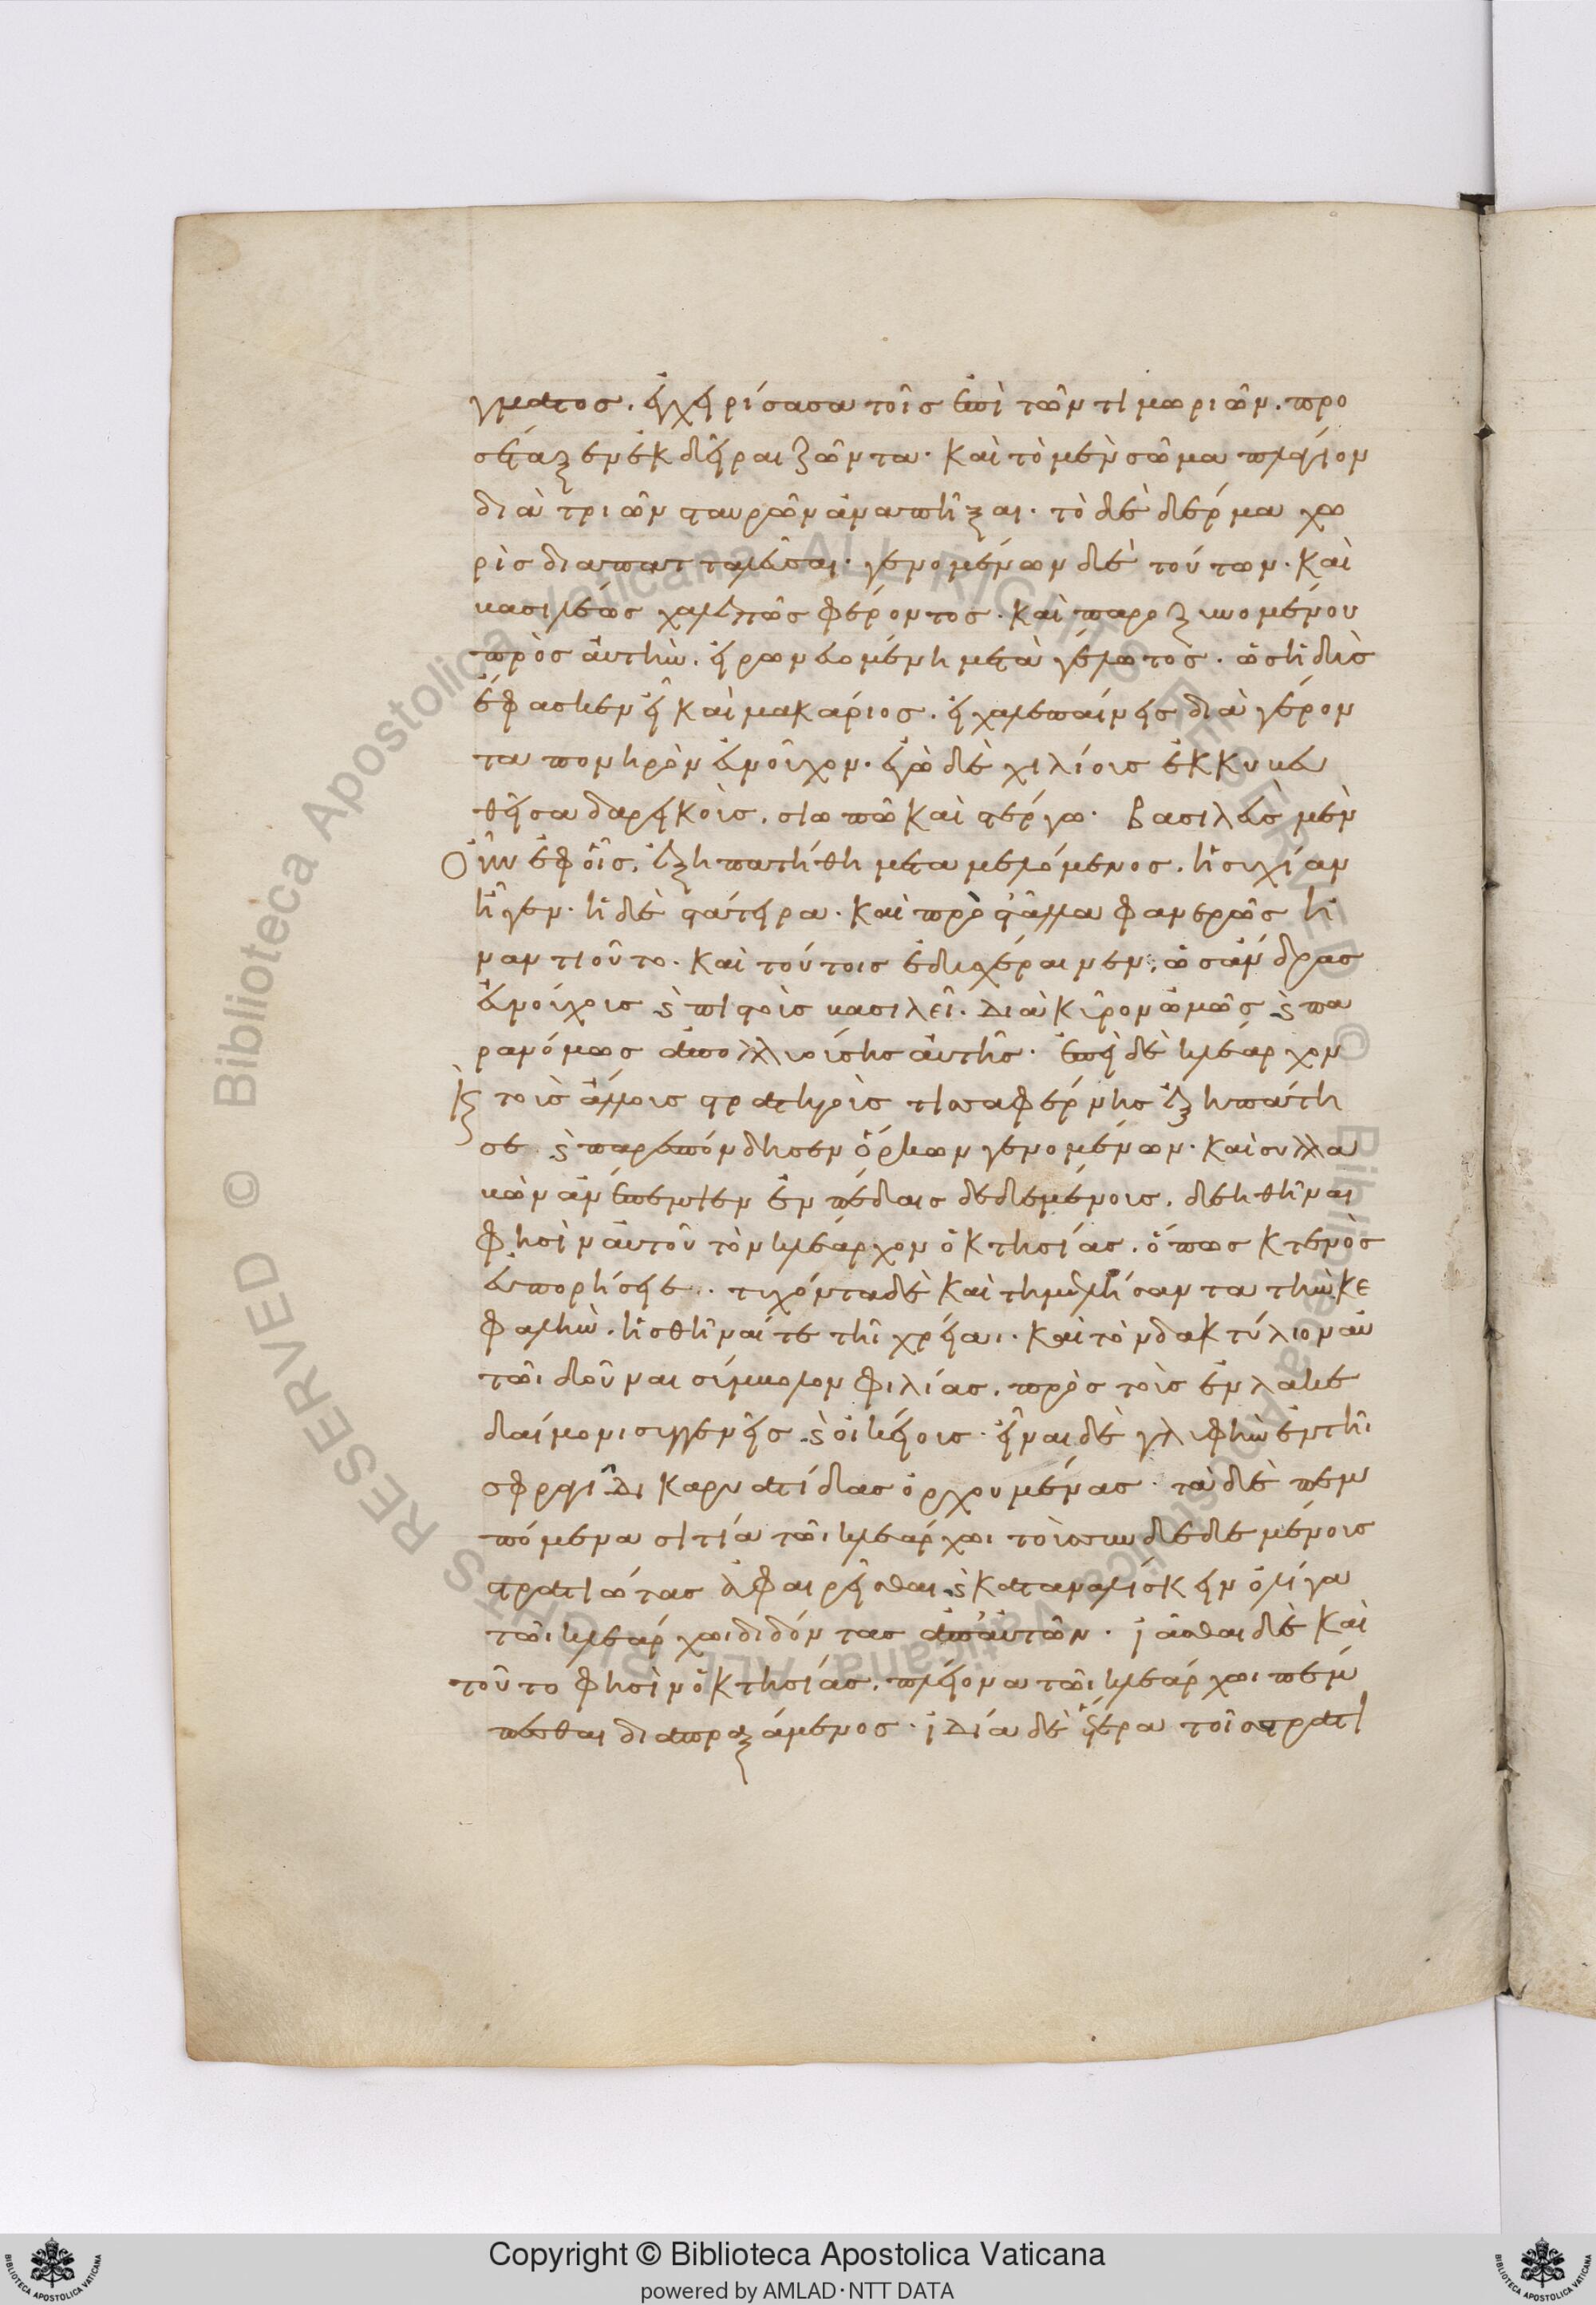 γματος. ἐγχειρίσασα τοῖς ἐπὶ τῶν τιμωριῶν. προ
σέταξεν ἐκδεῖραι ζῶντα. καὶ τὸ μὲν σῶμα πλάγιον
διὰ τριῶν σταυρῶν ἀναπῆξαι. τὸ δὲ δέρμα χω
ρὶς διαπατταλεῦσαι. γενομένων δὲ τούτων. καὶ
βασιλέως χαλεπῶς φέροντος. καὶ παροξυνομένου
πρὸς αὐτὴν. εἰρωνευομένη μετὰ γέλωτος. ὡς ἡδὺς
ἔφασκεν εἶ καὶ μακάριος. εἰ χαλεπαίνεις διὰ γέρον
τα πονηρὸν εὐνοῦχον. ἐγὼ δὲ χιλίους ἐκκυβευ
θεῖσα δαρεικοὺς. σιωπῶ καὶ στέργω. βασιλεὺς μὲν
οὖν ἐφοἷς. ἐξηπατήθη μεταμελόμενος. ἡσυχίαν
ἦγεν. ἡ δὲ στάτειρα. καὶ πρὸς τἆλλα φανερῶς ἠ
ναντιοῦτο. καὶ τούτοις ἐδυσχέραινεν. ὡς ἄνδρας
εὐνούχους καὶ πιστοὺς βασιλεῖ. διὰ κῦρον ὠμῶς καὶ πα
ρανόμως ἀπολλυούσης αὐτῆς. ἐπεὶ δὲ κλέαρχον
καὶ τοὺς ἄλλους στρατηγοὺς τισσαφέρνης ἐξηπάτη
σε καὶ παρεσπόνδησεν ὅρκων γενομένων. καὶ συλλα
βὼν ἀνέπεμψεν ἐν πέδαις δεδεμένους. δεηθῆναι
φησὶν αὐτοῦ τὸν κλέαρχον ὁ κτησίας. ὅπως κτενὸς
εὐπορήσειε. τυχόντα δὲ καὶ τημελήσαντα τὴν κε
φαλὴν. ἡσθῆναί τε τῆι χρείαι. καὶ τὸν δακτύλιον αὐ
τῶι δοῦναι σύμβολον φιλίας. πρὸς τοὺς ἐν λακε
δαίμονι συγγενεῖς καὶ οἰκείους. εἶναι δὲ γλυφὴν ἐν τῆι
σφραγῖδι καρυάτιδας ὀρχουμένας. τὰ δὲ πεμ
πόμενα σιτία τῶι κλεάρχωι τοὺς συνδεδεμένους
στρατιώτας ἀφαιρεῖσθαι καὶ καταναλίσκειν ὀλίγα
τῶι κλεάρχωι διδόντας ἀπαὐτῶν. ἰᾶσθαι δὲ καὶ
τοῦτο φησὶν ὁ κτησίας. πλείονα τῶι κλεάρχωι πέμ
πεσθαι διαπραξάμενος. ἰδία δὲ ἕτερα τοῖς στρατι